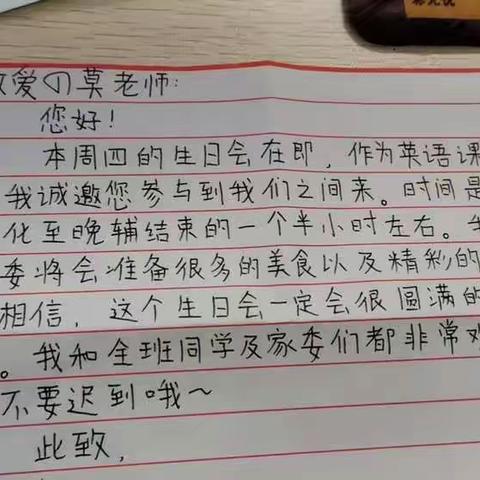 爱の莫老师：
您好！
本周四的生日会在即，作为英语课
我诚邀您参与到我们之间来。时间是
化至晚辅结束的一个半小时左右。
委将会准备很多的美食以及精彩的
相信，这个生日会一定会很圆满的
。我和全班同学及家委们都非常欢
不要迟到哦～
此致，